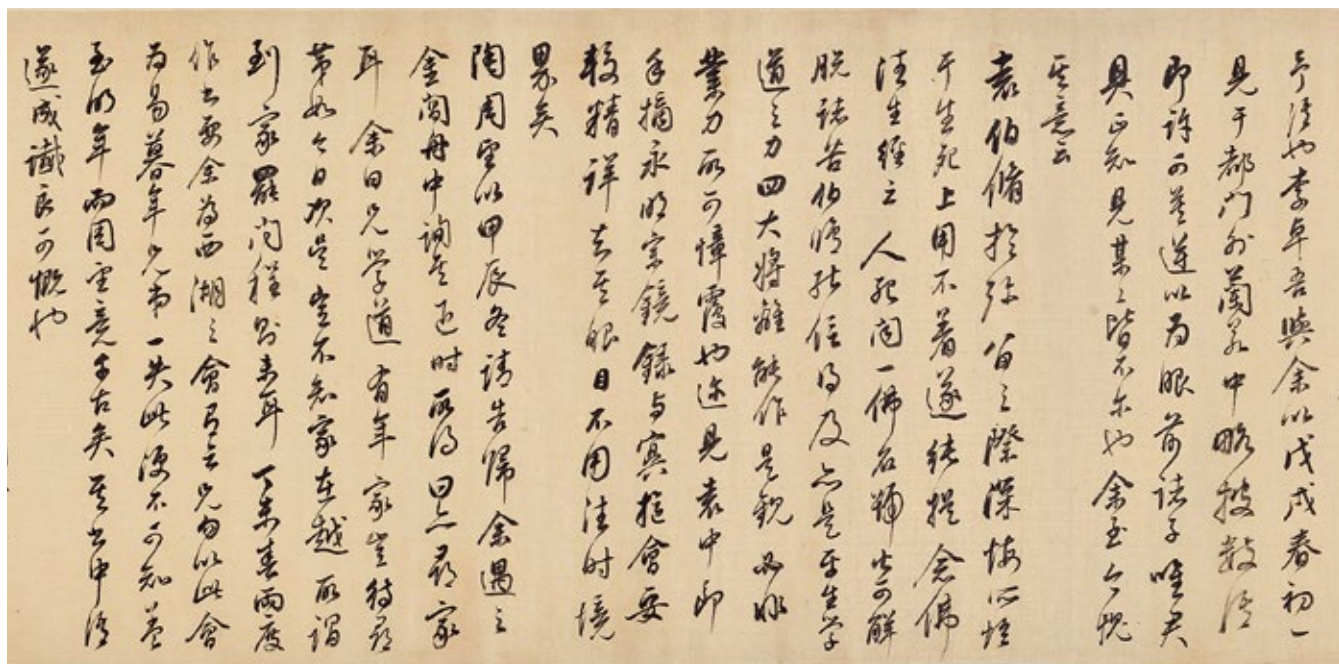 語也李卓吾與余以戊戌春初一
見于都門外蘭若中略披數語
即許可莫逆以為眼前諸子唯君
具正知見某〻皆不尔也余至今愧
其意云
袁伯脩於弥留之際深悔所悟
于生死上用不着遂純提念佛
往生經云人死聞一佛名號皆可解
脫諸苦伯脩能信得及亦是平生學
道之力四大將離能作是觀必非
業力所可障覆也迩見袁中郎
手摘永明宗鏡錄与冥樞會要
較精詳知其眼目不用往時境
界矣
陶周望以甲辰冬請告歸余遇之
金閶舟中詢其近時所得曰亦尋家
耳余曰兄學道有年家豈待尋
第如今日次吳豈不知家在越所謂
到家罷问程則未耳丁未春兩度
作書要余為西湖之會有云兄勿以此會
為易暮年兄弟一失此便不可知蓋
至明年而周望竟千古矣其書中語
遂成讖良可慨也